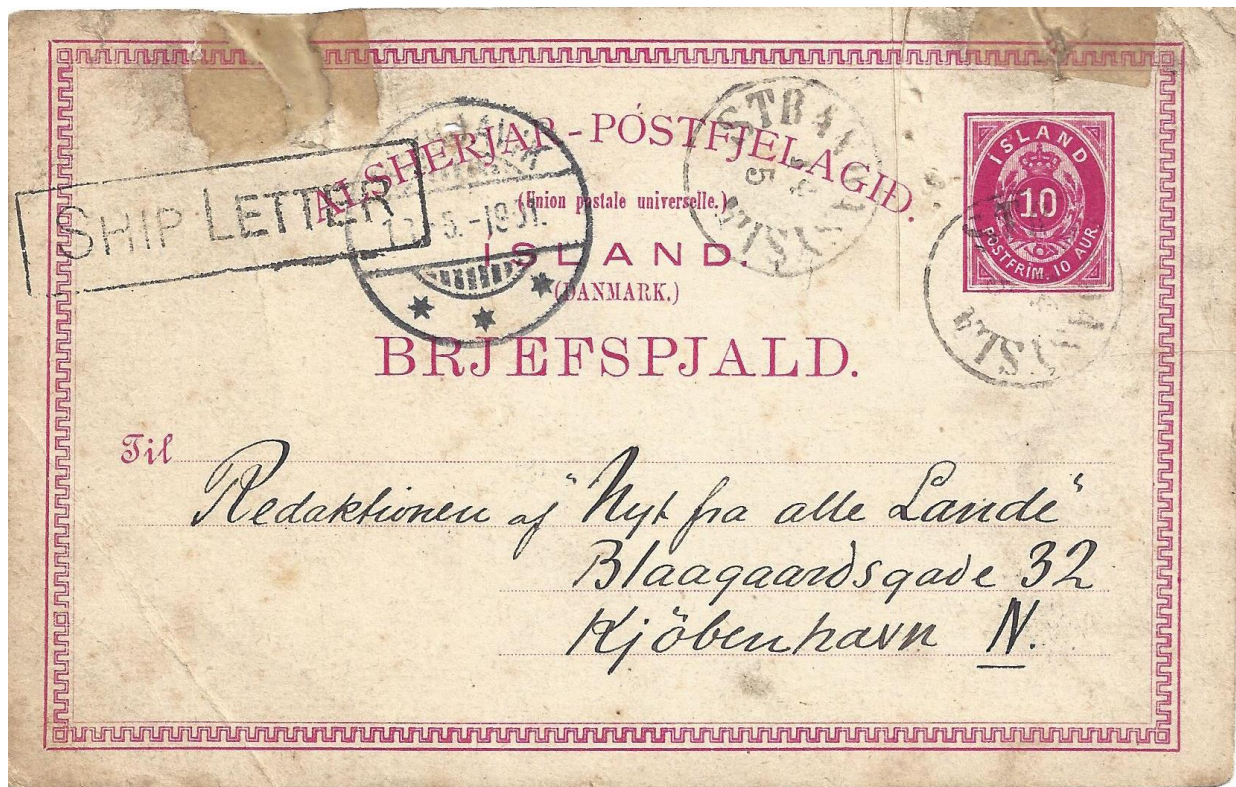 ALSHERJAR-PÓSTFJELAGIÐ.
(Union postale universelle.)
ÍSLAND.
(DANMARK.)
BRJEFSPJALD.
SHIP LETTER
ÍSLAND
10
PÓSTFRIM. 10 AUR.
Til
Redaktionen af "Nyt fra alle Lande"
Blaagaardsgade 32
Kjöbenhavn N.